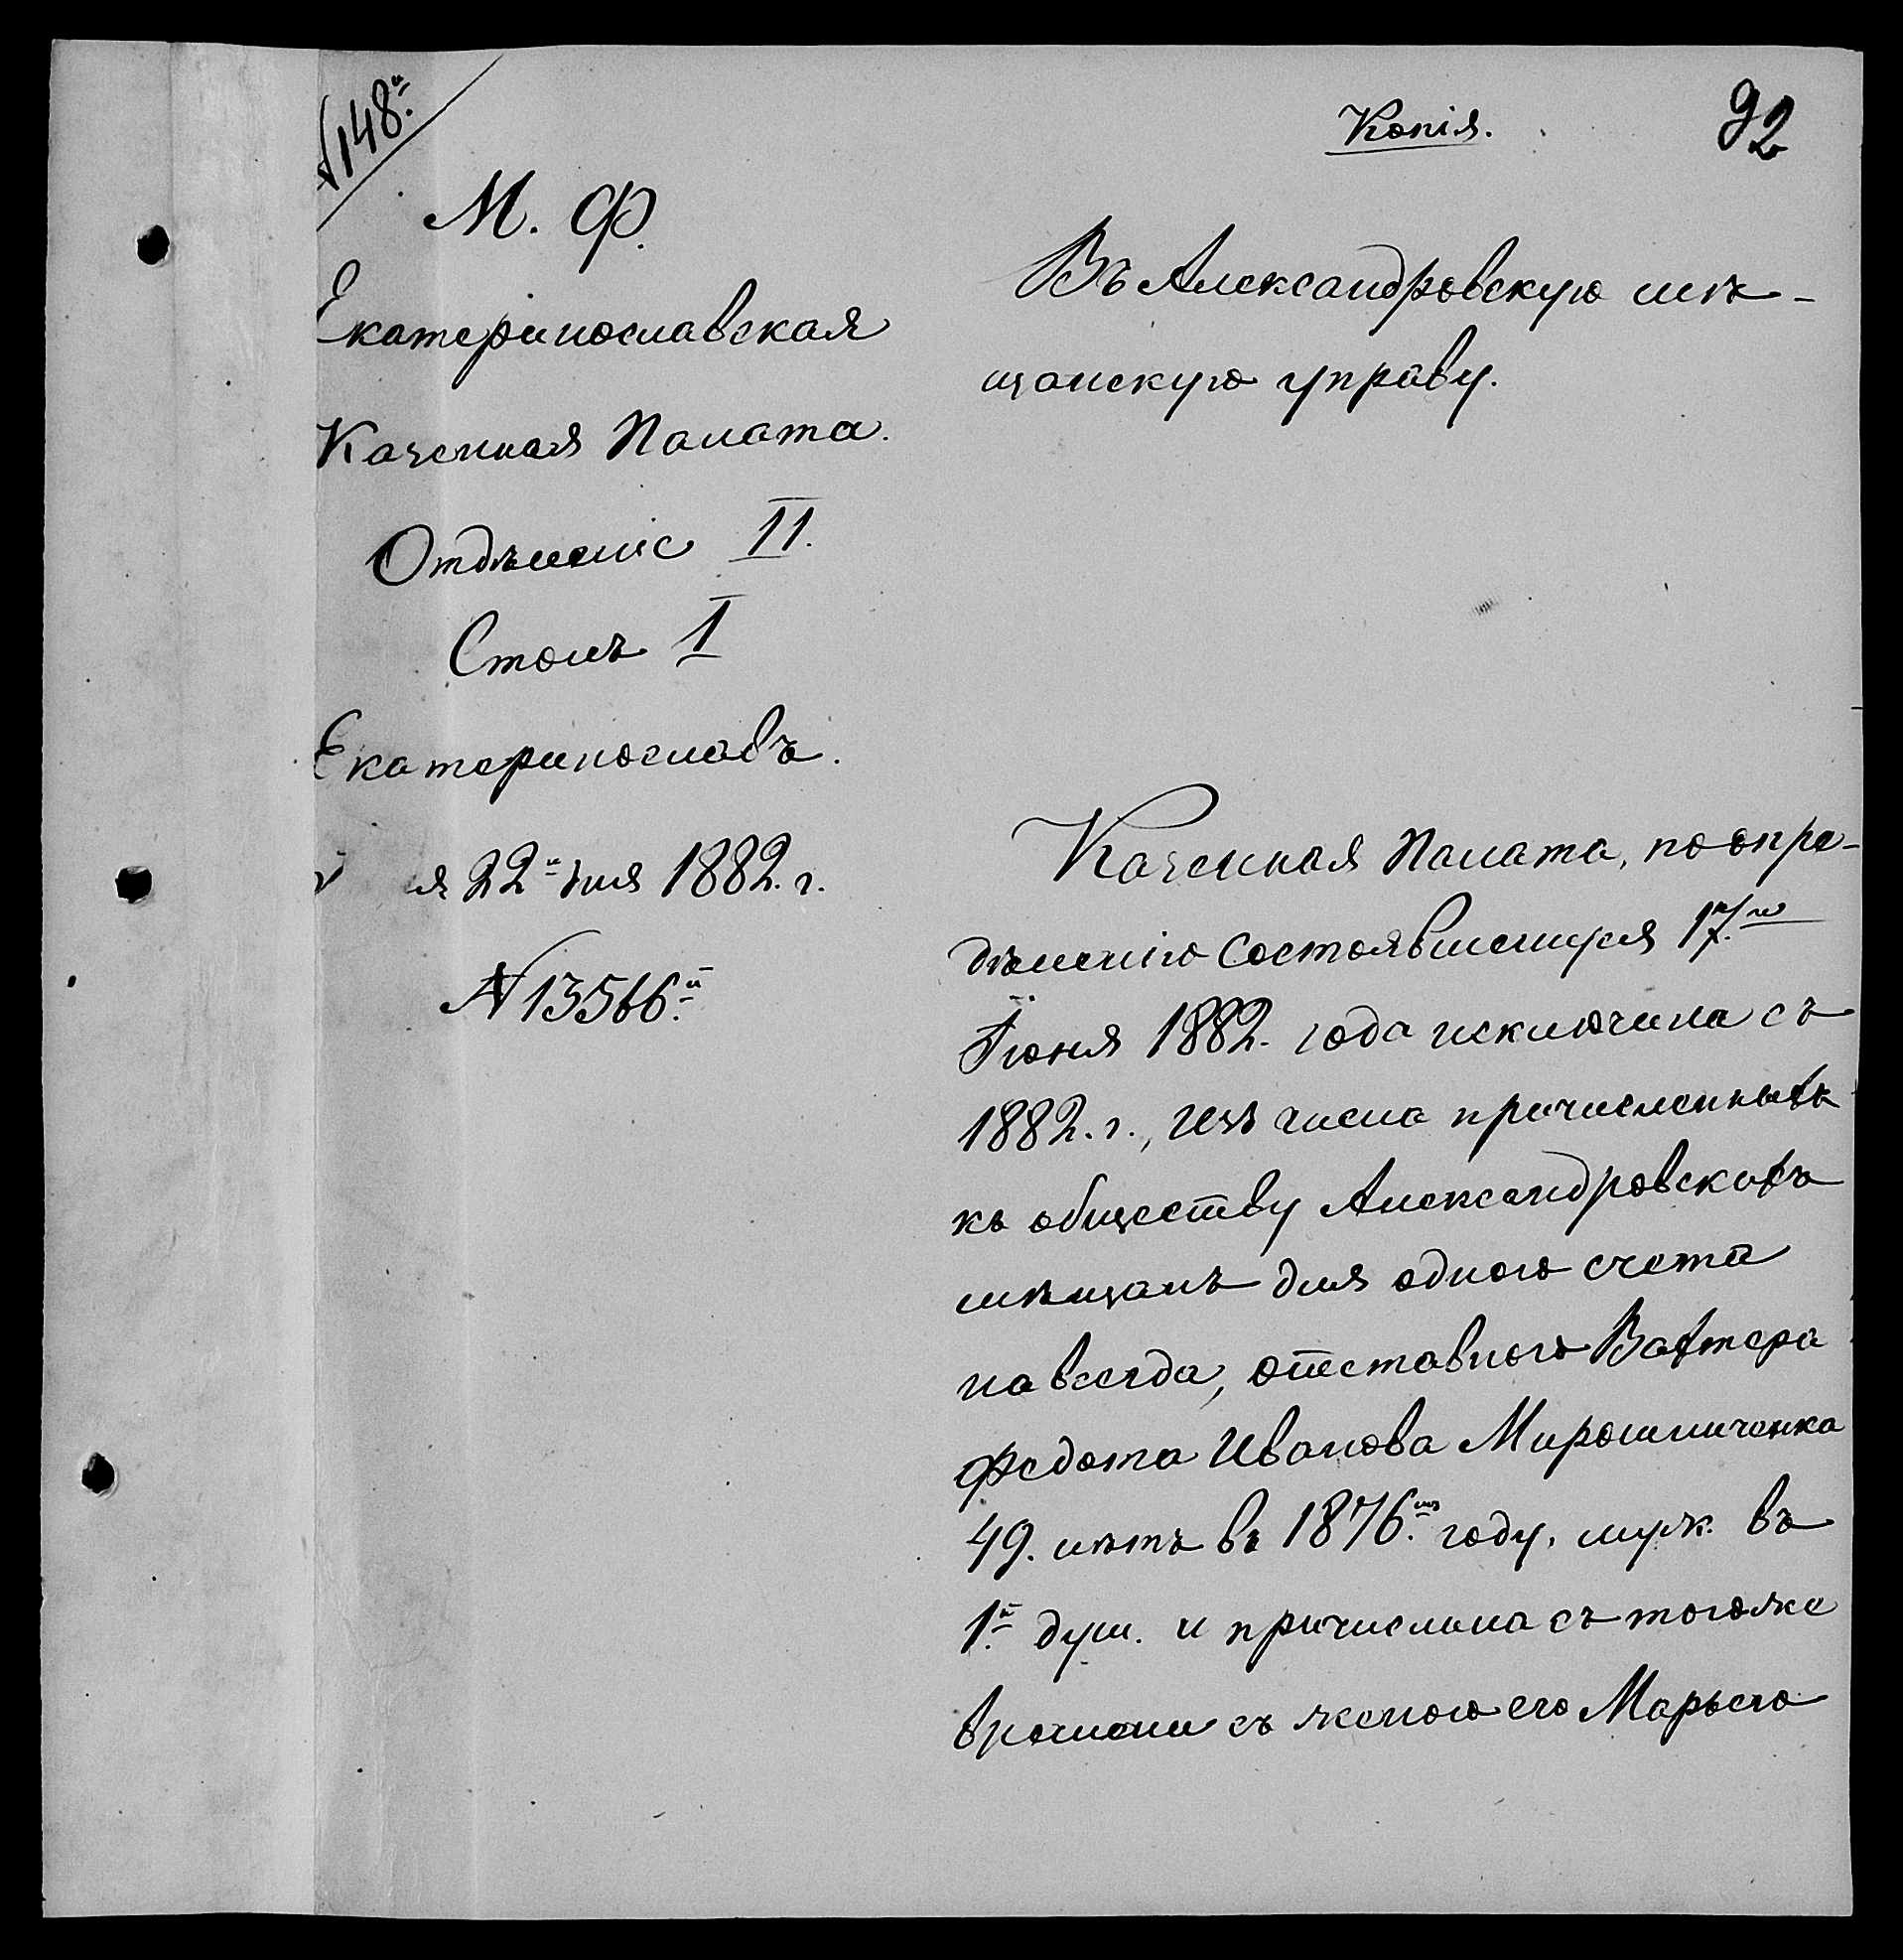 №148й.
Копія.
92
М. Ф.
Екатеринославская
Казенная Палата.
Отдѣленіе II.
Столъ I
Екатеринославъ.
22го дня 1882. г.
№ 13566й.
Въ Александровскую мѣ-
щанскую управу.
Казенная Палата, по опре-
дѣленію состоявшемуся 17го
Іюня 1882. года исключила съ
1882. г., изъ числа причисленныхъ
къ обществу Александровскихъ
мѣщанъ для одного счета
навсегда, отставного Вахтера
Федота Иванова Мирошниченка
49. лѣтъ въ 1876мъ году. муж. въ
1й душ. и причислила съ того же
времени съ женою его Марьею